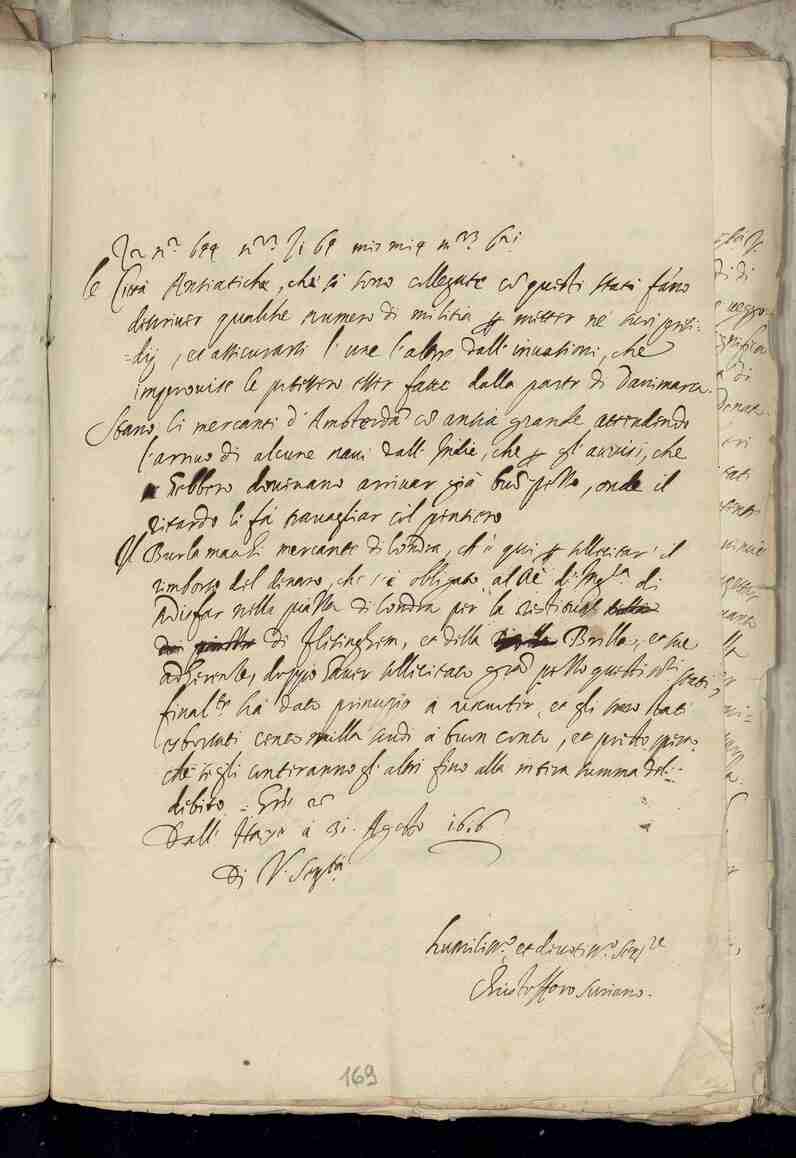 le Città Ansiatiche, che si sono collegate co questi stati fano
descriver qualche numero di militia p metter ne suoi presi=
=dij, et assicurarsi l'une l'altre dall'invasioni, che
improvise le potessero esser fatte dalla parte di Danimarca.
Stano li mercanti d'Amsterdã co ansia grande attendendo
l'arrivo di alcune navi dall'Indie, che p gl'avvisi, che
hebbero dovevano arrivar già buõ pezzo, onde il
ritardo li fà travagliar col pensiero
Il Burlamachi mercante di londra, ch'è qui p sollecitar il
rimborso del denaro, che s'è obligato al Rè di Ingl.ra di
sodisfar nella piazza di londra per la restitut.ne
di Flesinghem, et della Brilla, et sue
adherenze, doppo haver sollecitato grã pezzo questi Stati,
final.te hà dato principio a riscuoter, et gli sono stati
esborsati cento milla scudi à buon conto, et presto spera
che segli conteranno gl'altri fino alla intiera summa del
debito =
Dall'Haya à 31. Agosto 1616
Di V. Ser.tà
humiliss.o et devotiss.o ser.re
Christofforo Suriano.
169